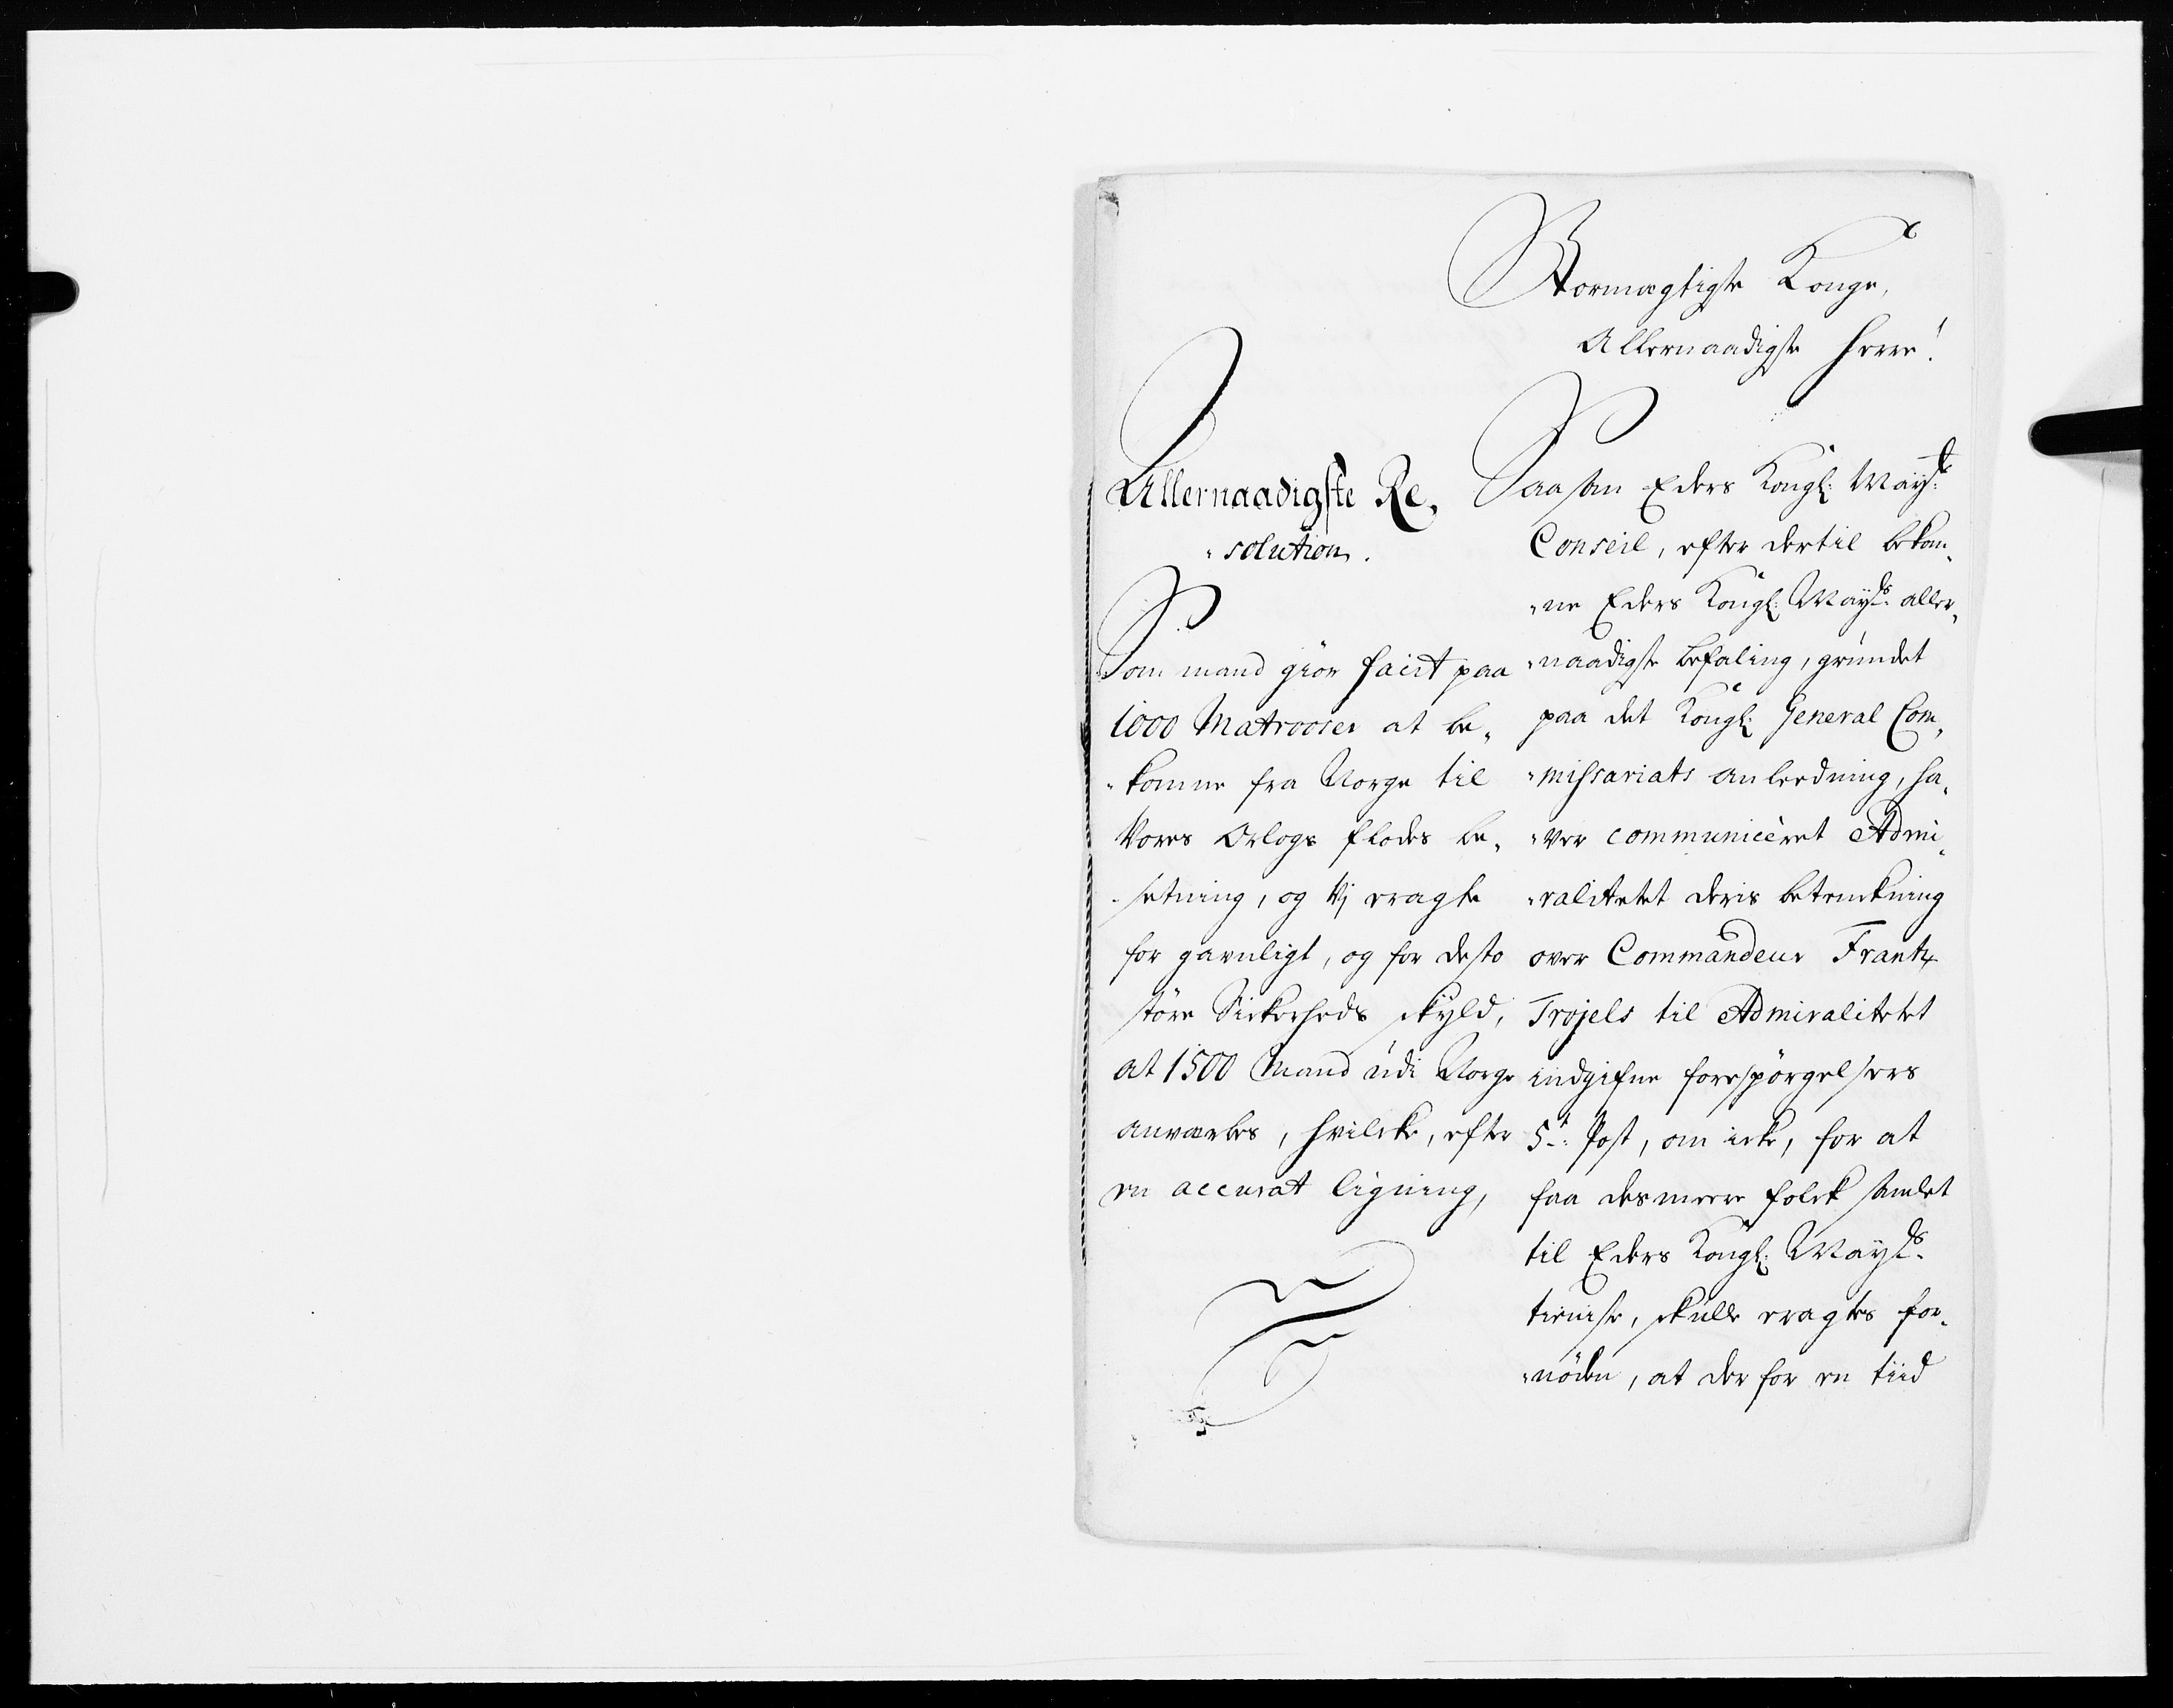 Stormægtigste Konge,
Allernaadigste Herre!
Allernaadigste Re„
„solution.
Som mand giör facit paa
1000 Matrooser at be„
„komme fra Norge til
Vores Orlogs flodes be„
„setning, og Vj eragte
for gavnligt, og for desto
störe Sickerheds skyld,
at 1500 Mand udi Norge
anværbes, hvilcke, efter
en accurat ligning,
Saasom Eders Kongl: Mayts
Conseil, efter dertil bekom„
„ne Eders Kongl: Mayts aller„
„naadigste befaling, grundet
paa det Kongl: General Com„
„missariats anleedning, ha„
„ver communiceret Admi„
„ralitetet deris betenckning
over Commandeur Frantz
Trojels til Admiralitetet
indgifne forespörgelsers
5t: Post, om icke, for at
faa des meere folck samlet
til Eders Kongl: Mayts
tieniste, skulle eragtes for„
„nöden, at der for en tiid